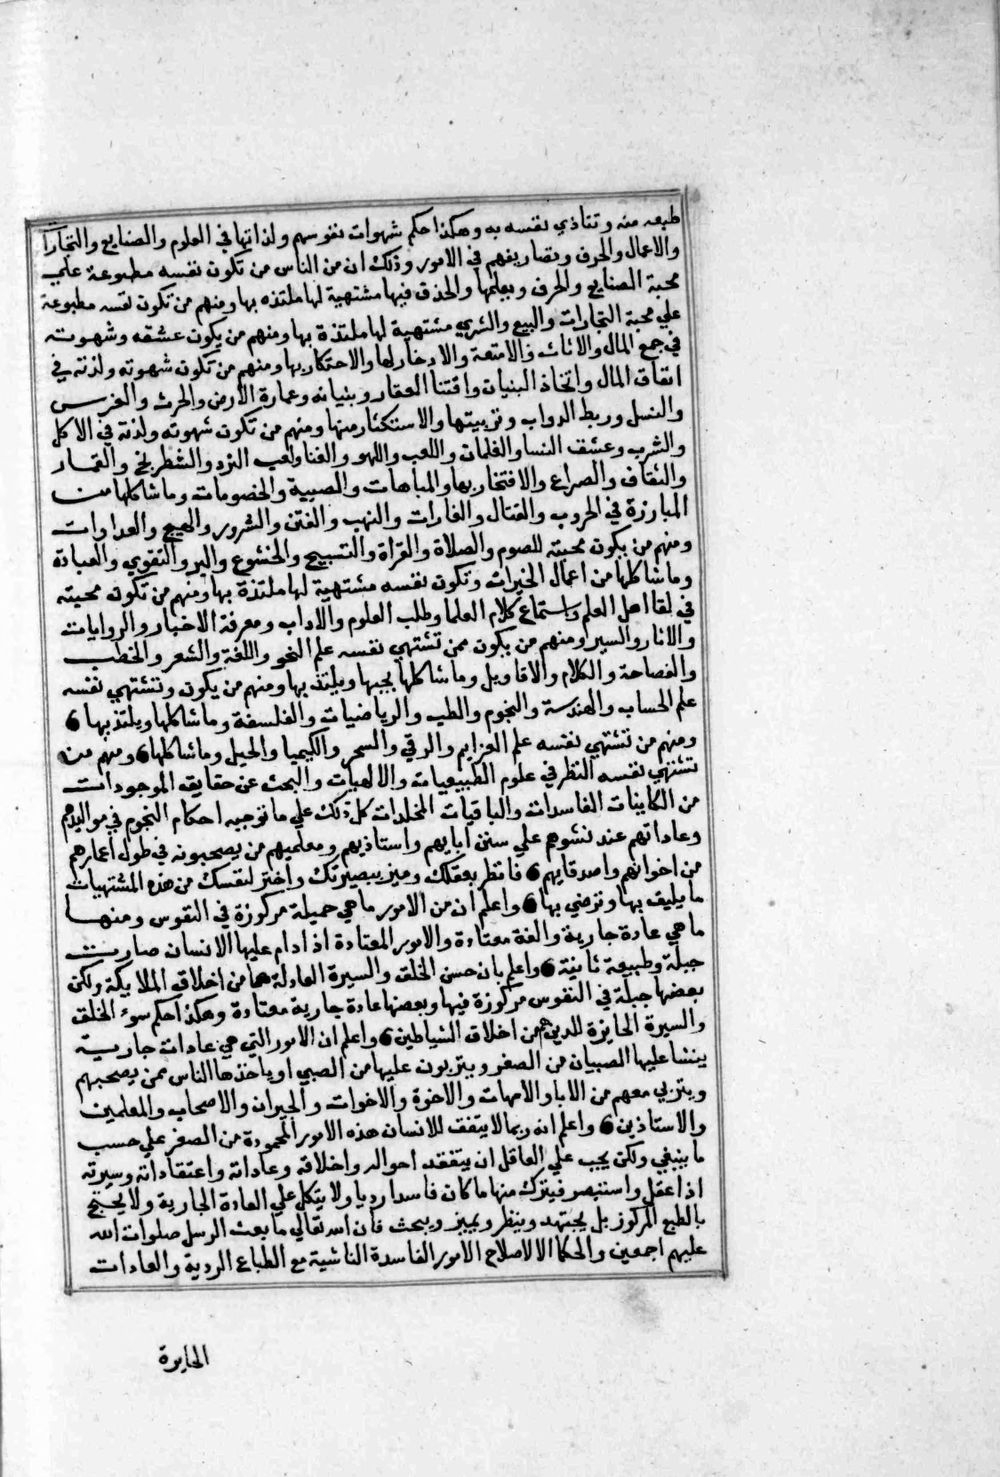 طبعه منه وتتاذي نفسه به وهكذا حكم شهوات نفوسهم ولذاتها في العلوم والصنايع والتجارات
والاعمال والحرف وتصاريفهم في الامور وذلك ان من الناس من تكون نفسه مطبوعة علي
محبة الصنايع والحرف وتعلمها والحذق فيها مشتهية لها ملتذه بها ومنهم من تكون نفسه مطبوعة
علي محبة التجارات والبيع والشري مشتهية لها ملتذة بها ومنهم من يكون عشقه وشهوته
في جمع المال والاثاث والامتعة والادخار لها والاحتكار بها ومنهم من تكون شهوته ولذته في
انفاق المال واتخاذ البنيان واقتنا العقار وبنيانه وعمارة الارض والحرث والغرس
والنسل وربط الدواب وتربيتها والاستكثار منها ومنهم من تكون شهوته ولذته في الاكل
والشرب وعشق النسا والغلمان واللعب واللهو والغنا ولعب النرد والشطرنج والقمار
والثقاف والصراع والافتخار بها والمباهات والصبية والخصومات وما شاكلها من
المبارزة في الحروب والقتال والغارات والنهب والفتن والشرور والهيج والعداوات
ومنهم من يكون محبته للصوم والصلاة والقراة والتسبيح والخشوع والبر والتقوي والعبادة
وما شاكلها من اعمال الخيرات وتكون نفسه مشتهية لها ملتذة بها ومنهم من تكون محبته
في لقا اهل العلم واستماع كلام العلما وطلب العلوم والاداب ومعرفة الاخبار والروايات
والاثار والسير ومنهم من يكون ممن تشتهي نفسه علم النحو واللغة والشعر والخطب
والفصاحة والكلام والاقاويل وما شاكلها يحبها ويلتذ بها ومنهم من يكون وتشتهي نفسه
علم الحساب والهندسة والنجوم والطب والرياضيات والفلسفة وما شاكلها ويلتذ بها 6
ومنهم من تشتهي نفسه علم العزايم والرقي والسحر والكيميا والحيل وما شاكلها 6 ومنهم من
تشتهي نفسه النظر في علوم الطبيعيات والالهيات والبحث عن حقايق الموجودات
من الكاينات الفاسدات والباقيات المخلدات كل ذلك علي ما توجبه احكام النجوم في مواليدهم
وعاداتهم عند نشوهم علي سنن ابايهم واستاذيهم ومعلميهم من يصحبونه في طول اعمارهم
من اخوانهم واصدقايهم 6 فانظر بعقلك وميز ببصيرتك واختر لنفسك من هذه المشتهيات
ما يليق بها وترضي بها 6 واعلم ان من الامور ما هي جميلة مركوزة في النفوس ومنها
ما هي عادة جارية والفة معتادة والامور المعتادة اذا دام عليها الانسان صارت
جبلة وطبيعة ثانية 6 واعلم بان حسن الخلق والسيرة العادلة هما من اخلاق الملايكة ولكن
بعضها جبلة في النفوس مركوزة فيها وبعضها عادة جارية معتادة وهكذا حكم سوء الخلق
والسيرة الجايزة للدين هم من اخلاق الشياطين 6 واعلم ان الامور التي هي عادات جارية
ينشا عليها الصبيان من الصغر ويتربون عليها من الصبي او ياخذها الناس ممن يصحبهم
ويتربي معهم من الابا والامهات والاخوة والاخوات والجيران والاصحاب والمعلمين
والاستاذين 6 واعلم انه ربما لا يتفق للانسان هذه الامور المحمودة من الصغر علي حسب
ما ينبغي ولكن يجب علي العاقل ان يتفقد احواله واخلاقه وعاداته واعتقاداته وسيرته
اذا عقل واستبصر فيترك منها ما كان فاسدا رديا ولا يتكل علي العادة الجارية ولا يحتج
بالطبع المركوز بل يجتهد وينظر ويميز ويبحث فان الله تعالي ما بعث الرسل صلوات الله
عليهم اجمعين والحكما الا لاصلاح الامور الفاسدة الناشية مع الطباع الردية والعادات
الجايرة